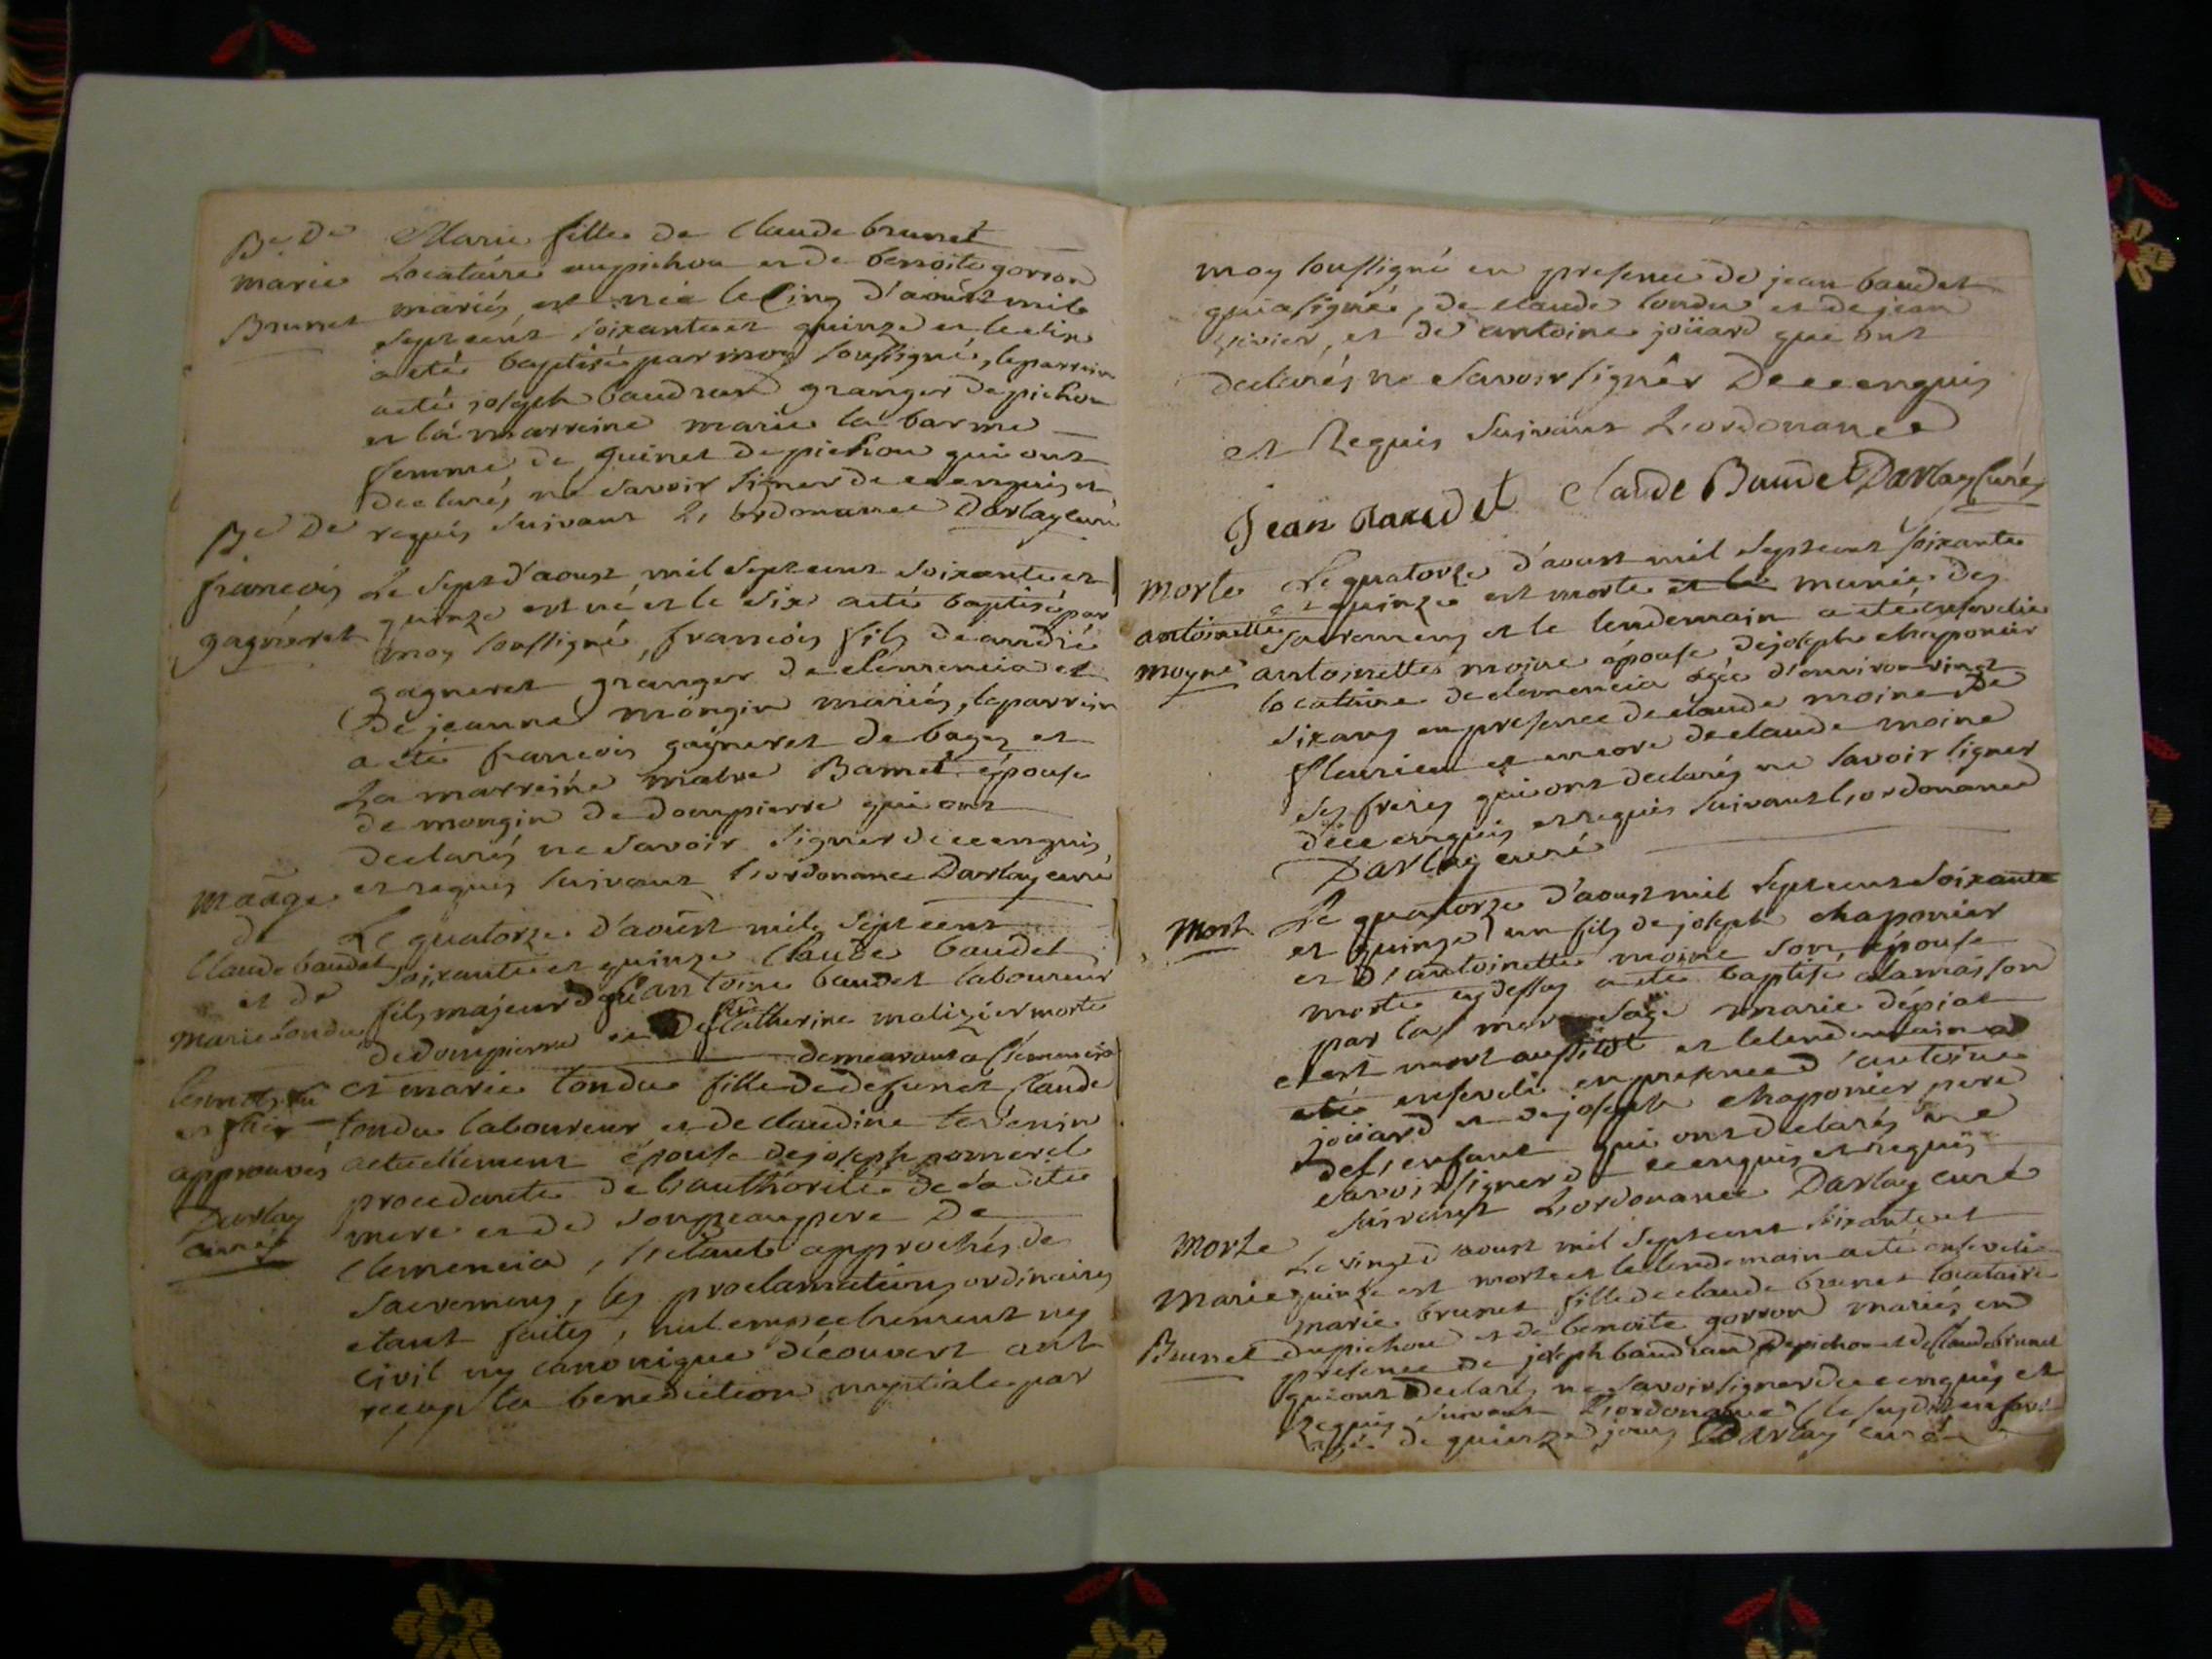 Be De Marie fille de Claude brunet
marie Locataire au pichou et de benoite gorron
Brunet mariés, est née le Cinq d'aoust mil
sept cent soixante et quinze et le dix
a eté baptisée par moy soussigné, le parrein
a eté joseph baudrand granger de pichou
et la marreine marie la barme
femme de guinet de pichou qui ont
declarés ne savoir signer de ce enquis et
Be De requis suivant L'ordonnance Darlay curé
francois Le sept d'aoust mil sept cent soixante et
quinze est né et le six a eté baptisé par
gagneret moy soussigné, francois fils de andré
gagneret granger de clemencia et
De jeanne mongin mariés, le parrein
a eté francois gagneret de bagez et
La marreine Bamet épouse
de mongin de dompierre qui ont
declarés ne savoir signer de ce enquis
et requis suivant l'ordonance Darlay curé
Maage
de Le quatorze d'aoust mil sept cent
Claude baudet soixante et quinze Claude baudet
et de fils majeur de antoine baudet laboureur
Marie tondu de dompierre Catherine malizier morte
demeurant a Clemencia
et marie tondu fille de defunct Claude
tondu laboureur et de claudine
approuvés actuellement épouse de joseph pomerel
Darlay procedante de l'authorité de sa dite
curé mere et de son beaupere De
Clemencia, s'etant approchés de
sacremens, les proclamations ordinaires
etant faites, nul empechement ny
civil ny canonique découvert ont
reçus la benediction nuptiale par
moy soussigné en presence de jean baudet
qui a signé, de claude tondu et de jean
, et de antoine joüard qui ont
declarés ne savoir signer De ce enquis
et Requis suivant L'ordonance
Jean Baudet Claude Baudet Darlay Curé
morte Le quatorze d'aoust mil sept cent soixante
et quinze est morte et la munie des
antoinette sacremens et le lendemain a eté ensevelie
moyne antoinette moine épouse de joseph chaponier
locataire de clemencia agée d'environ vingt
six ans en presence de claude moine de
fleurieu et encore de claude moine
ses freres qui ont declarés ne savoir signer
de ce enquis et requis suivant l'ordonance
Darlay curé
Mort Le quatorze d'aoust mil sept cent soixante
et quinze un fils de joseph chaponier
et d'antoinette moine son épouse
morte cy dessus a eté baptisé a la maison
par la mere sage marie dépiat
et est mort aussitot et le lendemain a
eté enseveli en presence d'antoine
joüard et de joseph chaponier pere
de l'enfant qui ont declarés ne
savoir signer de ce enquis et requis
suivant L'ordonance Darlay curé
Morte Le vingt d'aoust mil sept cent soixante et
Marie quinze est morte et le lendemain a eté ensevelie
marie brunet fille de claude brunet locataire
Brunet du pichou et de benoite gorron mariés en
presence de joseph baudrand de pichou et de Claude brunet
qui ont declarés ne savoir signer de ce enquis et
Requis suivant L'ordonance (le susdit enfant
agée de quinze jours Darlay curé